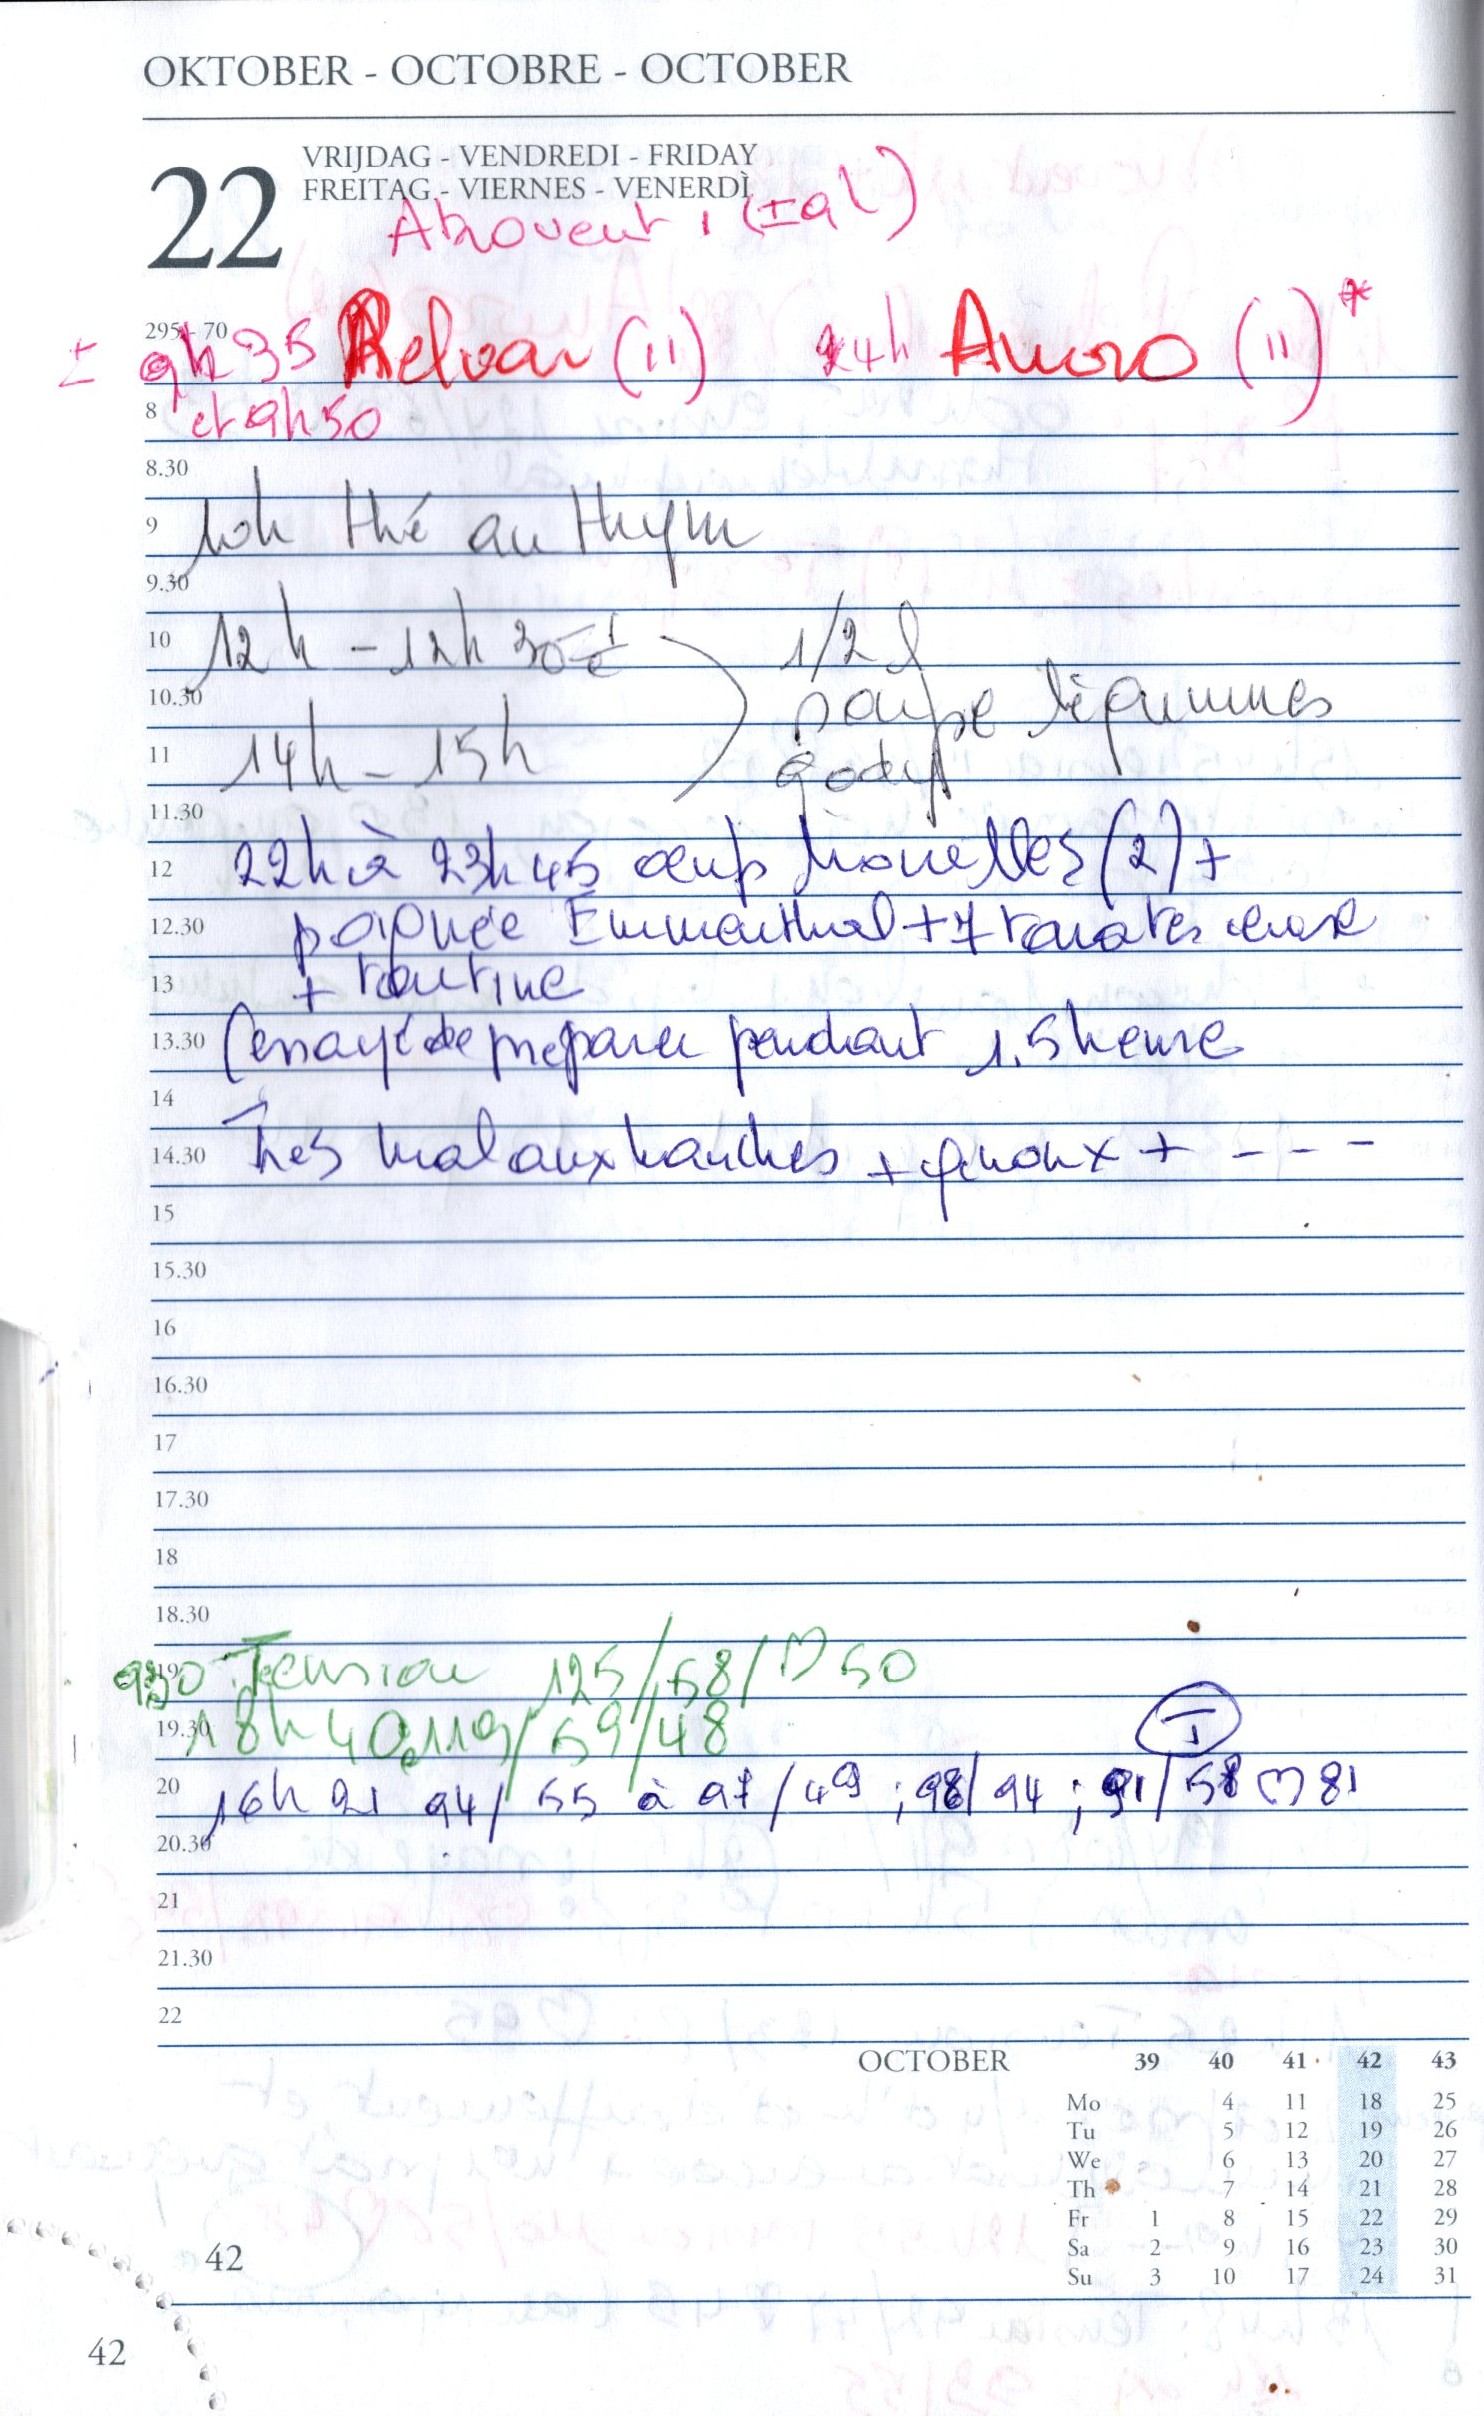 OKTOBER - OCTOBRE - OCTOBER
22
VRIJDAG - VENDREDI - FRIDAY
FREITAG - VIERNES - VENERDÌ
Atrovent 1 (±9h)
295 - 70
± 9h35 Relvar (11) 24h Anoro (11)*
8
et 9h50
8.30
9 10h thé au thym
9.30
10 12h - 12h30 1/2 l
10.30 soupe légumes
11 14h - 15h
11.30
12 22h à 23h45 oeufs brouillés (2) +
12.30 poignée Emmenthal + 7 tomates cerise
13 + tartine
13.30 (essayé de préparer pendant 1.5 heure
14
14.30 Très mal aux hanches + genoux + - - - -
15
15.30
16
16.30
17
17.30
18
18.30
19 930 Tension 125/58/♡ 50
19.30 18h40 119/59/48
I
20 16h21 94/55 à 97/49 ; 98/94 ; 91/58 ♡ 81
20.30
21
21.30
22
OCTOBER 39 40 41 42 43
Mo 4 11 18 25
Tu 5 12 19 26
We 6 13 20 27
Th 7 14 21 28
Fr 1 8 15 22 29
Sa 2 9 16 23 30
Su 3 10 17 24 31
42
42